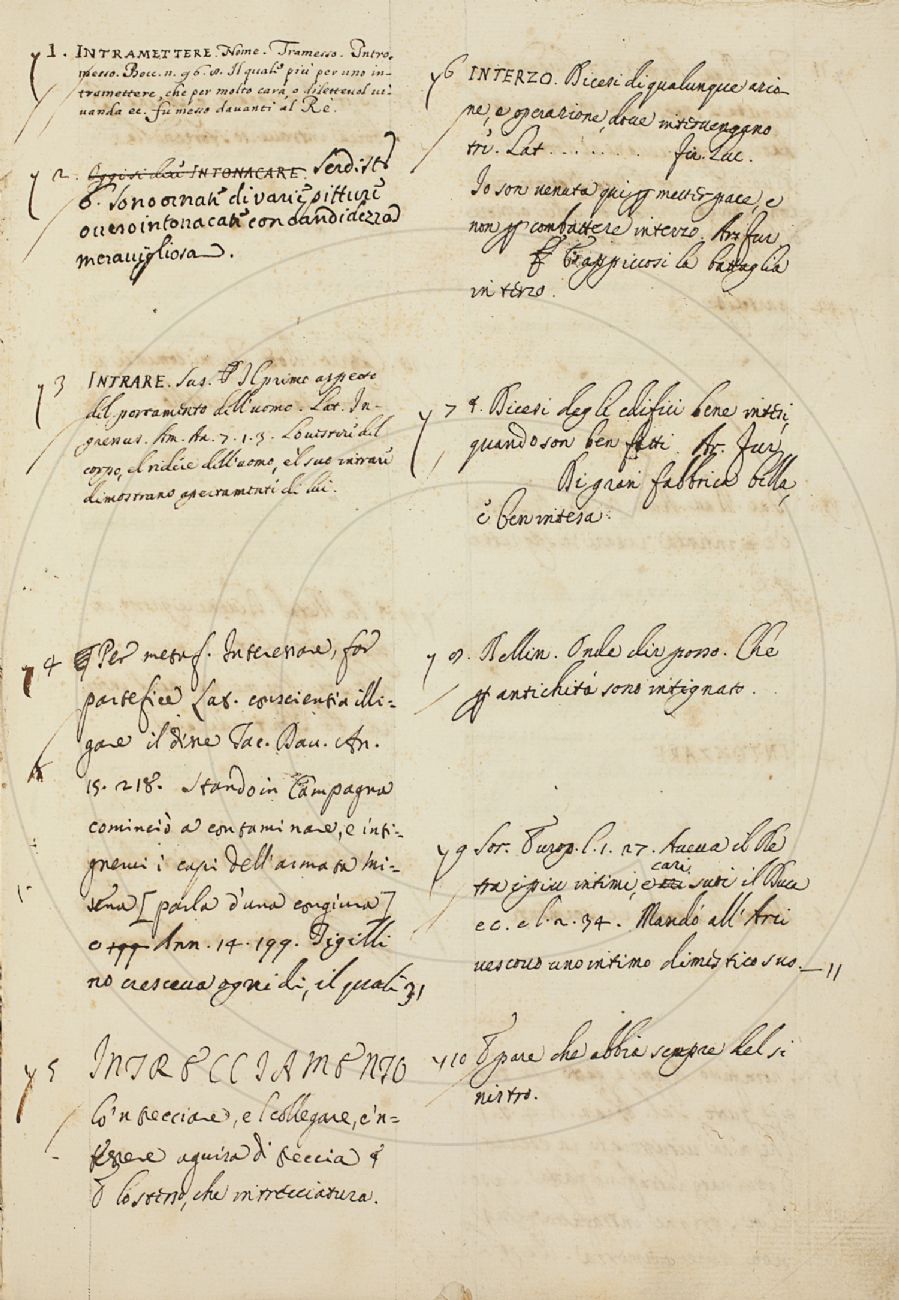 1. INTRAMETTERE. Nome. Tramesso. Intro,
messo. Bocc. n. 96. 8. Il quale più per uno in-
tramettere, che per molto cara, o dilettevol vi-
vanda ec. fu messo davanti al Re.
2. INTONACARE. Serdist
6. Sono ornate di varie pitture
overo intonacate con candidezza
meravigliosa.
3 INTRARE. Sus. Il primo aspecto
del portamento dell'uomo. Lat. In-
grenus. Am. An. 7. 1. 3. Lo vestire del
corpo, el ridere dell'uomo, el suo intrare
dimostrano apertamente di lui.
4 Per metaf. Interessare, far
partefice Lat. conscientia illi-
gare il dine Tac. Dav. An.
15. 218. Stando in Campagna
cominciò a contaminare, e inti-
gnervi i capi dell'armata Mi-
sena [parla d'una congiura]
e Ann. 14. 199. Tigilli
no cresceva ogni di, il quale 31
5 INTRECCIAMENTO
Lo'ntrecciare, e'l collegare, e'n-
tessere aguisa di treccia
lo stesso, che intrecciatura.
6 INTERZO. Dicesi di qualunque azio
ne, e operazione, dove intervengano
tre. Lat . . . . . . . fu. Luc.
Io son venuta qui p metter pace, e
non p combattere interzo. Ar. Fur
E appiccosi la battaglia
in terzo.
7 Dicesi degli edifici bene intesi,
quando son ben fatti. Ar. Fur,
Di gran fabbrica bella,
e ben intesa.
8. Bellin. Onde dir posso. Che
p antichità sono intignato.
9 Sor. Europ. l. 1. 27. Aveva il Re
cari
tra i piu intimi, e suoi il Duca
ec. e l. 2. 34. Mandò all' Arci
vescovo uno intimo dimestico suo. — 11
10 E pare che abbia sempre del si
nistro.